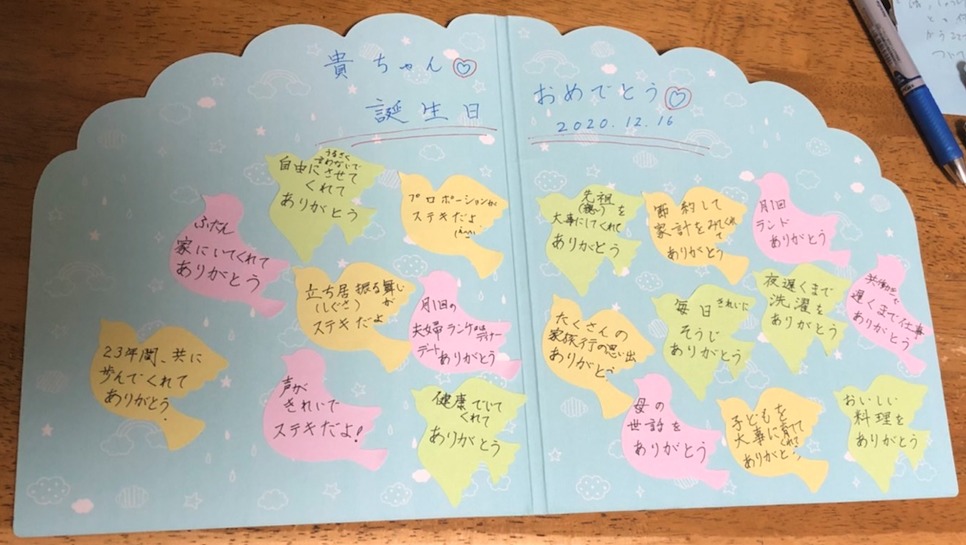 貴ちゃん♡
誕生日
おめでとう♡
2020.12.16
うるさく
言わないで
自由にさせて
くれて
ありがとう
プロポーションが
ステキだよ
ふだん
家にいてくれて
ありがとう
立ち居振る舞い
(しぐさ)が
ステキだよ
月1回の
夫婦ランチorディナー
デート
ありがとう
23年間、共に
歩んでくれて
ありがとう
声が
きれいで
ステキだよ!
健康でいて
くれて
ありがとう
先祖
(親)を
大事にしてくれて
ありがとう
節約して
家計をみてくれて
ありがとう
月1回
ランド
ありがとう
たくさんの
家族旅行の思い出
ありがとう
毎日きれいに
そうじ
ありがとう
夜遅くまで
洗濯を
ありがとう
共働きで
遅くまで仕事
ありがとう
母の
世話を
ありがとう
子どもを
大事に育てて
くれて
ありがとう
おいしい
料理を
ありがとう